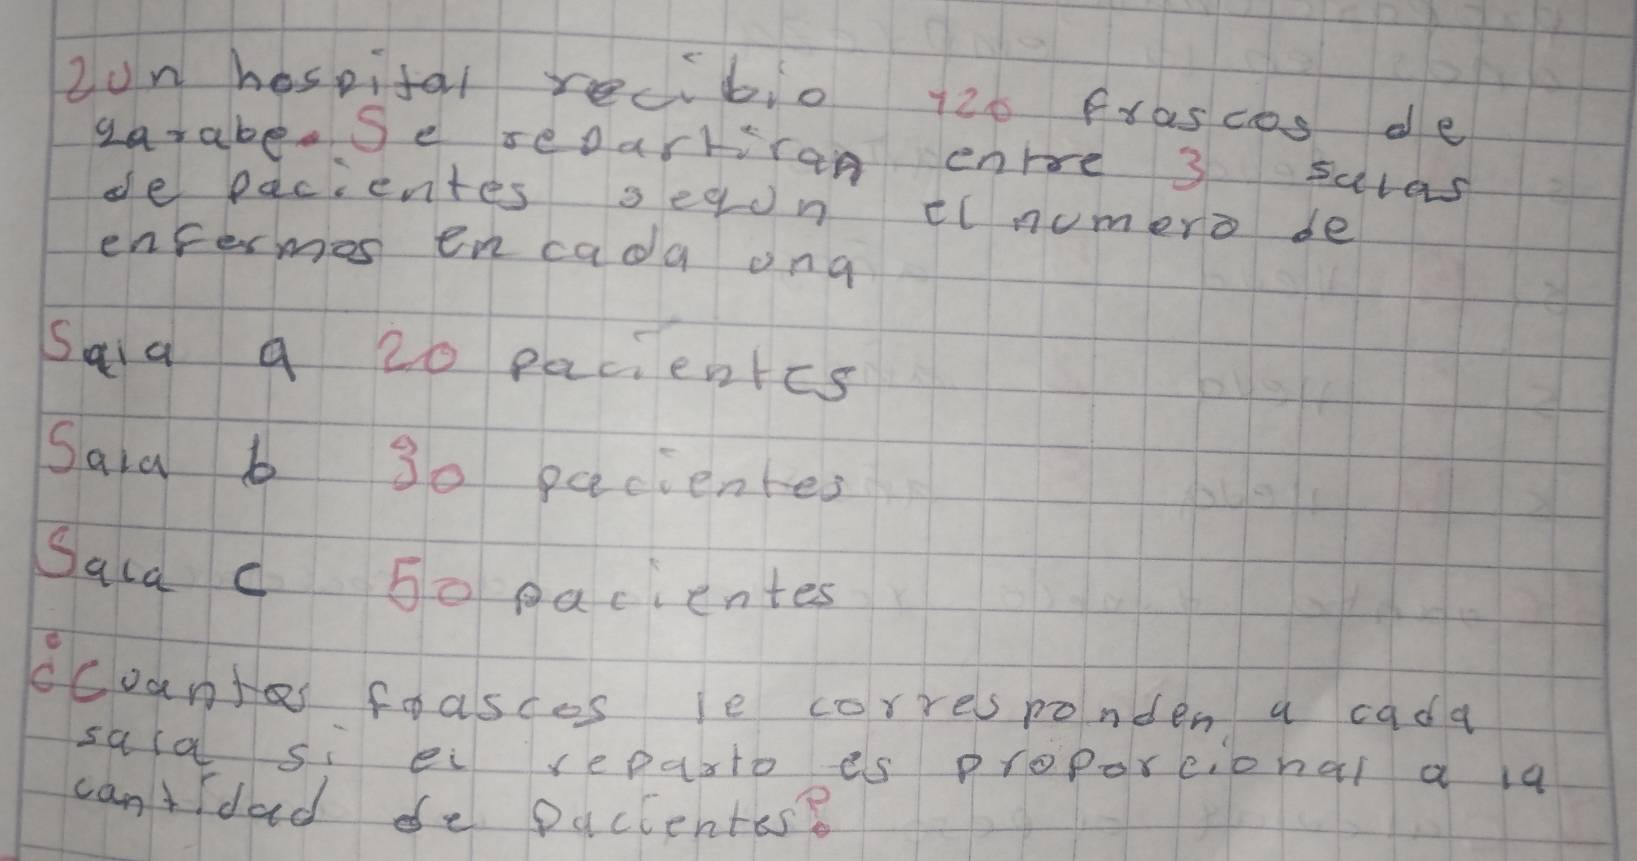 2Un hospital recibio 120 frascos de
garabe. Se repartiran entre 3 salas
de pacientes segun el numero de
enfermos en cada una
Sala a 20 pacientes
Sala b 30 pacientes
Sala c 50 pacientes
¿Cuantos frascos le corresponden a cada
sala si el reparto es proporcional a la
cantidad de pacientes?